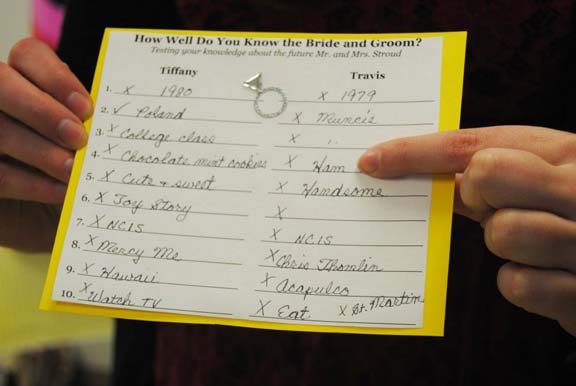 How Well Do You Know the Bride and Groom?
Testing your knowledge about the future Mr. and Mrs. Stroud
Tiffany Travis
1. X 1980 X 1979
2. ✓ Poland X Muncie
3. X College class X "
4. X Chocolate mint cookies X Ham
5. X Cute & sweet X Handsome
6. X Toy Story X
7. X NCIS X NCIS
8. X Mercy Me X Chris Thomlin
9. X Hawaii X Acapulco
10. X Watch TV X Eat X St. Martin